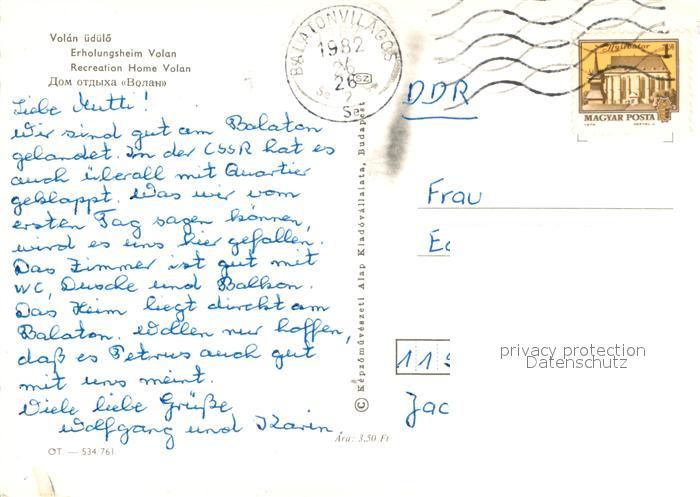 Volán üdülő
Erholungsheim Volan
Recreation Home Volan
Дом отдыха «Волан»
Liebe Mutti!
Wir sind gut am Balaton
gelandet. In der CSSR hat es
auch überall mit Quartier
geklappt. Was wir vom
ersten Tag sagen können,
wird es uns hier gefallen.
Das Zimmer ist gut mit
WC, Dusche und Balkon.
Das Heim liegt direkt am
Balaton. Wollen nur hoffen,
daß es Petrus auch gut
mit uns meint.
Viele liebe Grüße
Wolfgang und Karin
Ára: 3,50 Ft
OT. — 534/761
© Képzőművészeti Alap Kiadóvállalata, Budapest
BALATONVILÁGOS
1982
26
SZ
DDR
Nyírbátor
MAGYAR POSTA
Frau
11
Jac
privacy protection
Datenschutz